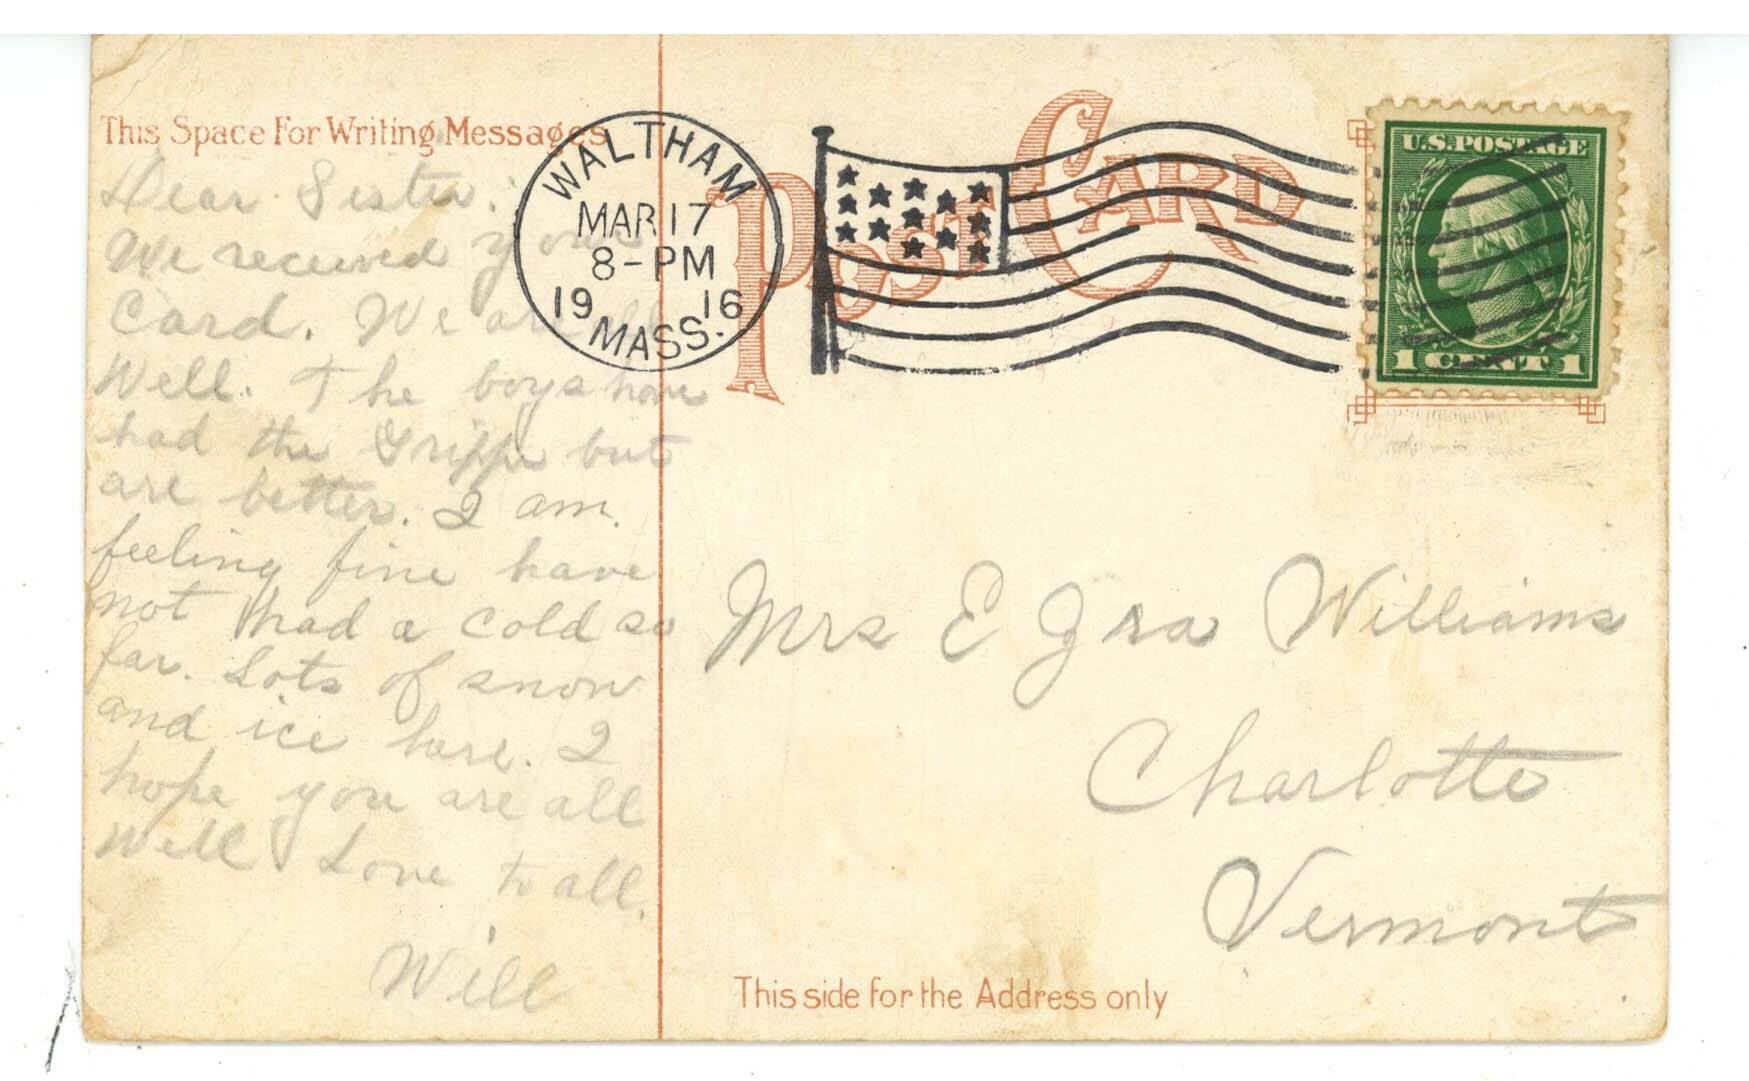 This Space For Writing Messages
Dear Sister:
We received yours
Card. We are all
Well. The boys have
had the Grippe but
are better. I am
feeling fine have
not had a cold so
far. Lots of snow
and ice here. I
hope you are all
Well Love to all.
Will
WALTHAM
MAR 17
8-PM
19 16
MASS.
POST CARD
U.S. POSTAGE
1 CENT 1
Mrs Ezra Williams
Charlotte
Vermont
This side for the Address only